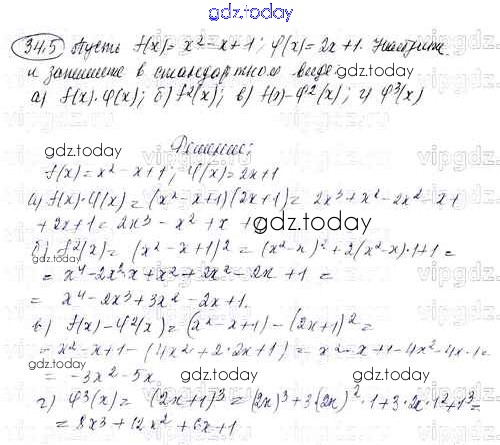 gdz.today
34.5 Пусть f(x) = x² - x + 1; φ(x) = 2x + 1. Найдите
и запишите в стандартном виде:
а) f(x)·φ(x); б) f²(x); в) f(x) - φ²(x); г) φ³(x)
gdz.today
Решение:
f(x) = x² - x + 1; φ(x) = 2x + 1
а) f(x)·φ(x) = (x² - x + 1)(2x + 1) = 2x³ + x² - 2x² - x +
+ 2x + 1 = 2x³ - x² + x +
gdz.today
б) f²(x) = (x² - x + 1)² = (x² - x)² + 2(x² - x)·1 + 1 =
= x⁴ - 2x²·x + x² + 2x² - 2x + 1 =
= x⁴ - 2x³ + 3x² - 2x + 1.
в) f(x) - φ²(x) = (x² - x + 1) - (2x + 1)² =
= x² - x + 1 - (4x² + 2·2x + 1) = x² - x + 1 - 4x² - 4x - 1 =
= -3x² - 5x
г) φ³(x) = (2x + 1)³ = (2x)³ + 3(2x)²·1 + 3·2x·1² + 1³ =
= 8x³ + 12x² + 6x + 1
gdz.today
gdz.today